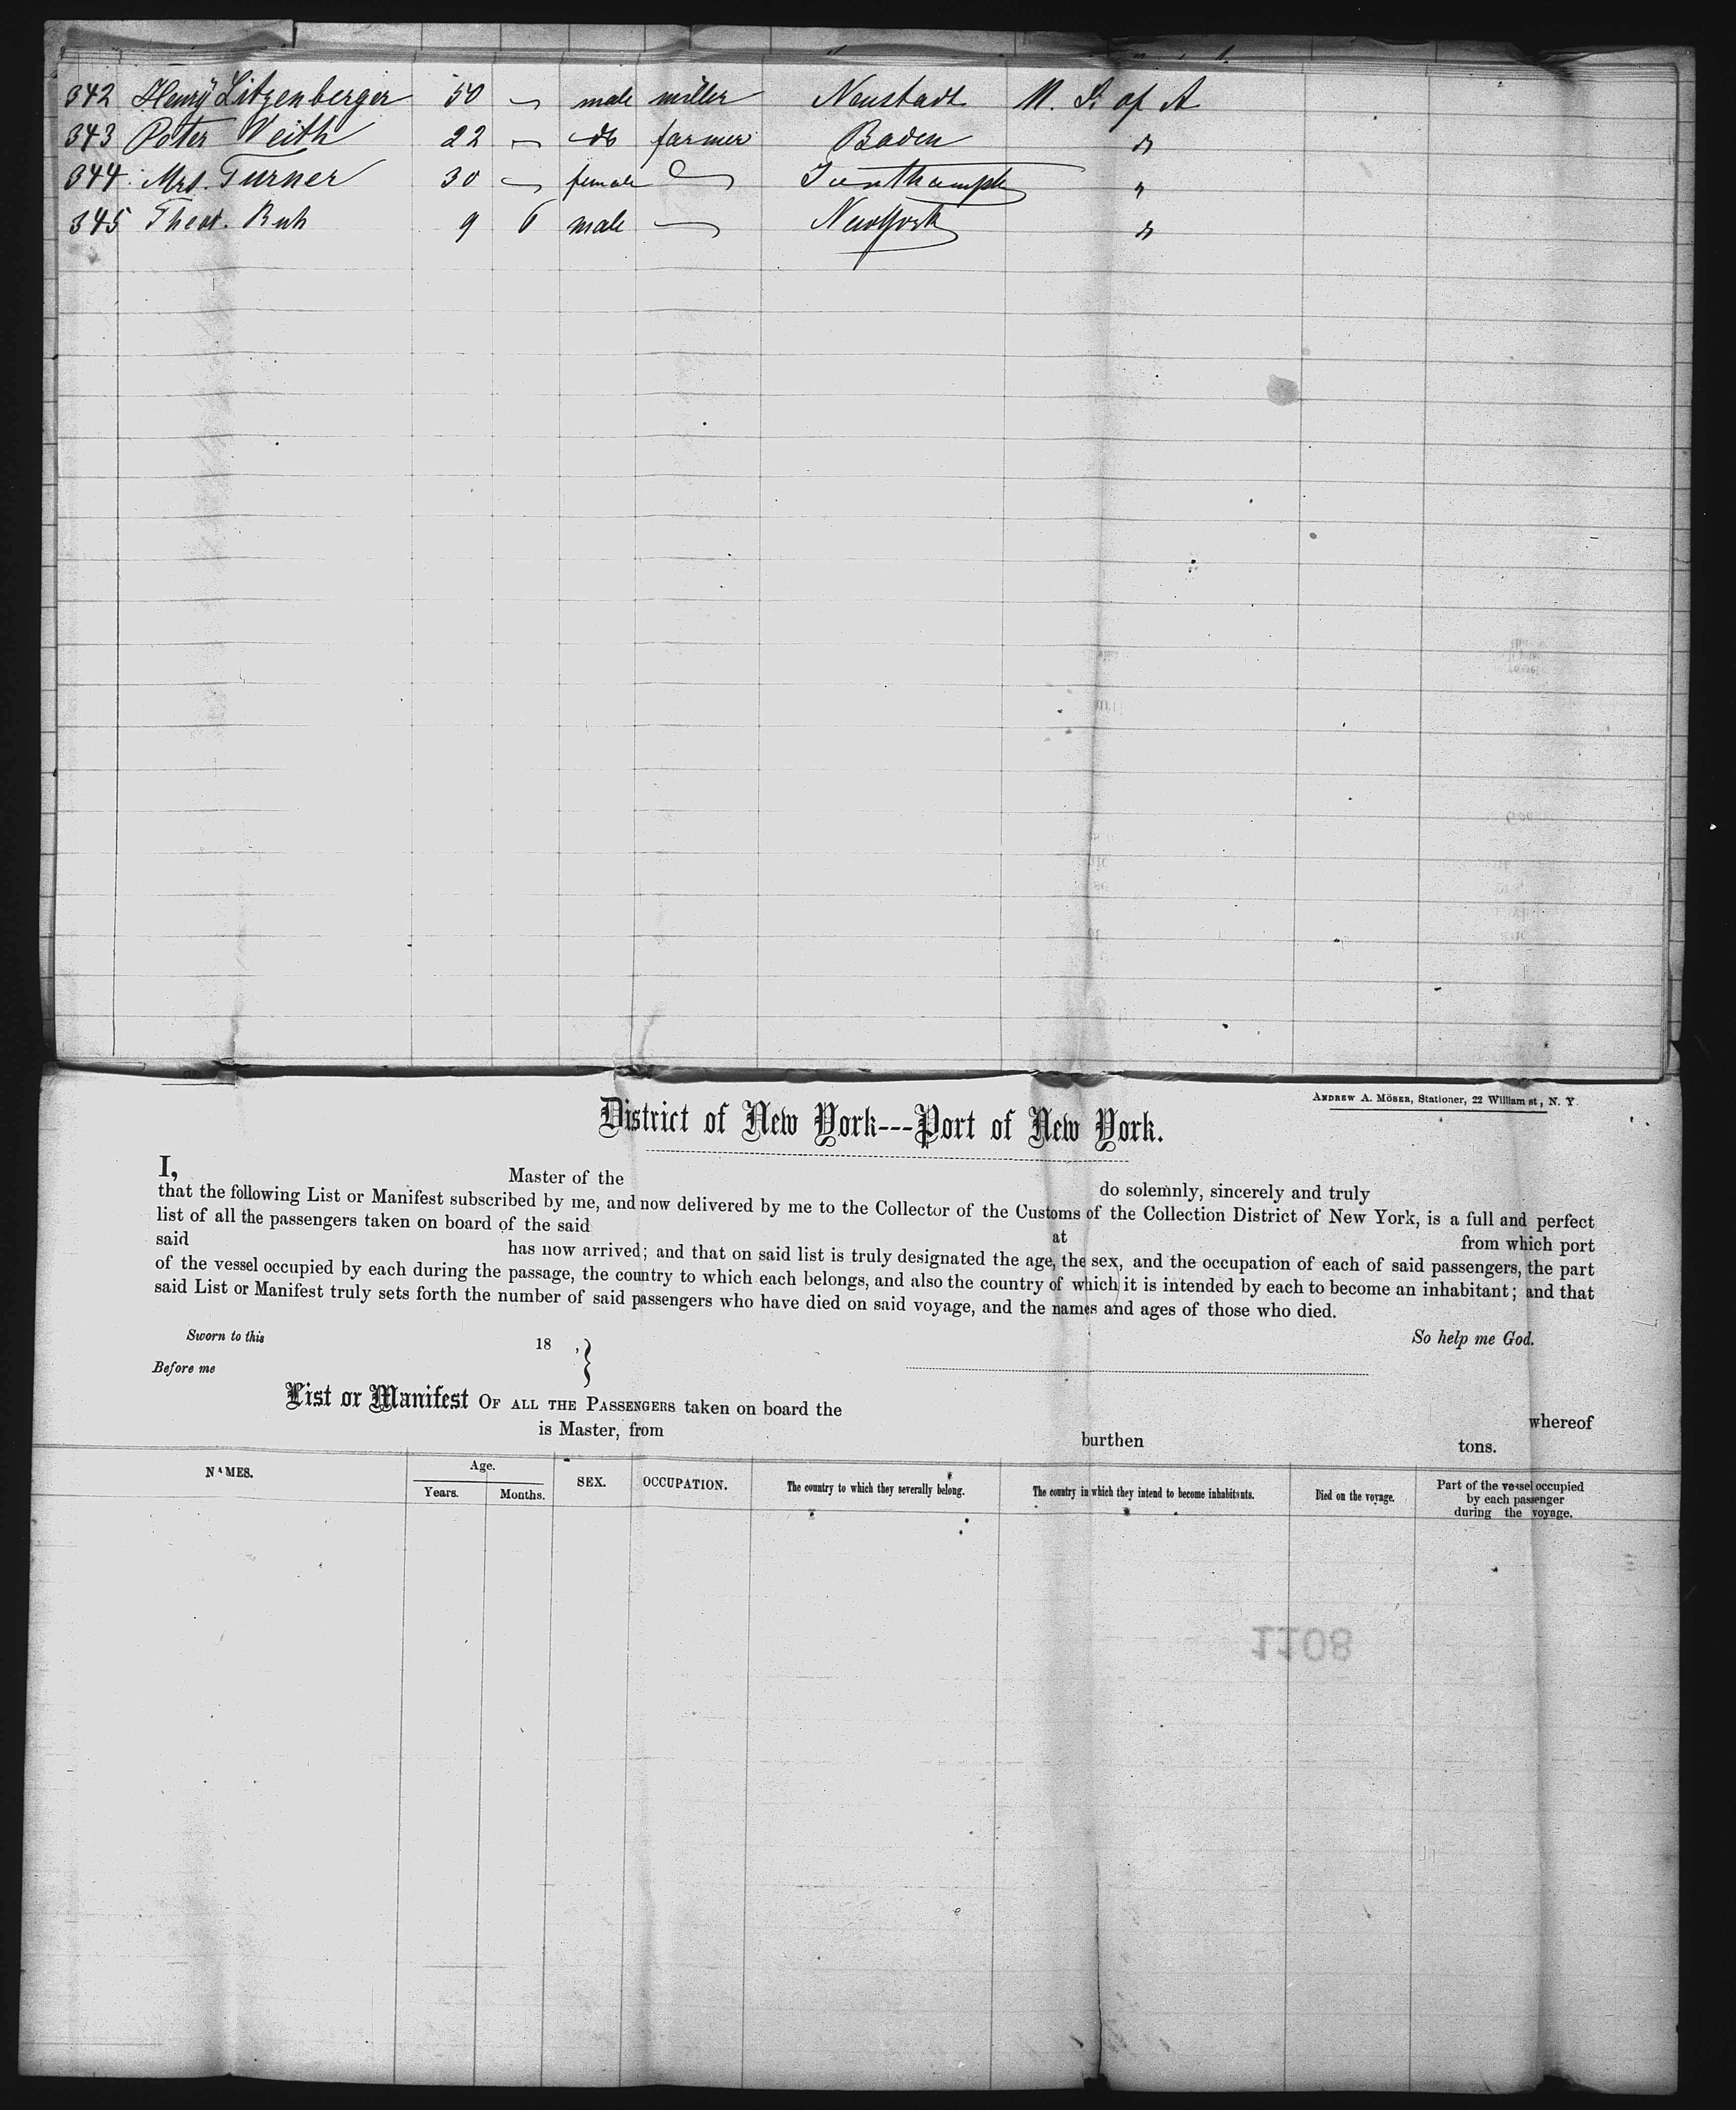 342 Henry Litzenberger 50 — male miller Neustadt U. S. of A
343 Peter Weith 22 — do farmer Baden "
344 Mrs. Turner 30 — female — "
345 Theod. Ruh 9 6 male — New York "
ANDREW A. MÖSER, Stationer, 22 William st, N. Y.
District of New York---Port of New York.
I, Master of the do solemnly, sincerely and truly
that the following List or Manifest subscribed by me, and now delivered by me to the Collector of the Customs of the Collection District of New York, is a full and perfect
list of all the passengers taken on board of the said at from which port
said has now arrived; and that on said list is truly designated the age, the sex, and the occupation of each of said passengers, the part
of the vessel occupied by each during the passage, the country to which each belongs, and also the country of which it is intended by each to become an inhabitant; and that
said List or Manifest truly sets forth the number of said passengers who have died on said voyage, and the names and ages of those who died.
Sworn to this 18 , } So help me God.
Before me
List or Manifest OF ALL THE PASSENGERS taken on board the whereof
is Master, from burthen tons.
NAMES. Age. Years. Months. SEX. OCCUPATION. The country to which they severally belong. The country in which they intend to become inhabitants. Died on the voyage. Part of the vessel occupied by each passenger during the voyage.
1108